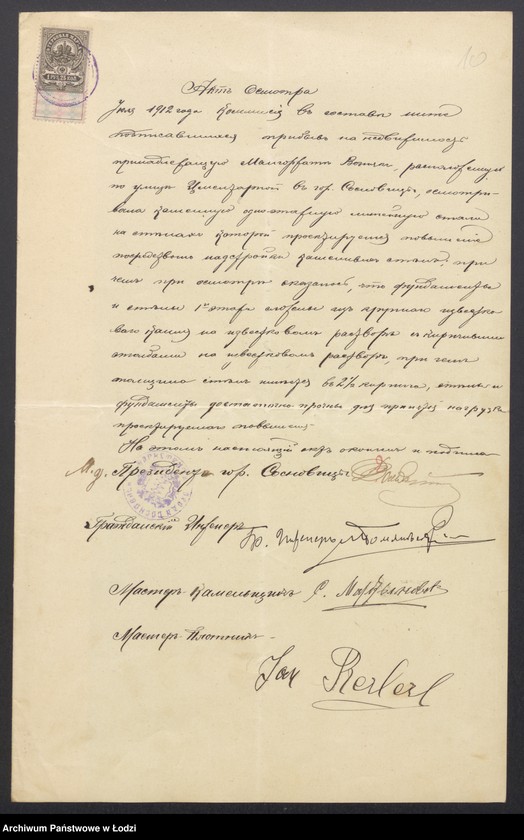 10
Актъ Осмотра
1912 года Комиссія въ составѣ ниже
подписавшихся прибывъ на недвижимость
принадлежащую расположенную
по улицѣ Цментарной въ гор. Сосновицы, осмотри-
вала каменную одноэтажную литейную стали
на стѣнахъ которой проектируется повышеніе
посредствомъ надстройки каменныхъ стѣнъ, при
чемъ при осмотрѣ оказалось, что фундаменты
и стѣны 1го этажа сложены изъ крупнаго известко-
ваго камня на известковомъ растворѣ съ кирпичными
столбами на известковомъ растворѣ, при чемъ
толщина стѣнъ въ 2½ кирпича, стѣны и
фундаменты достаточно прочны для нагрузки
проектируемаго повышенія
На этомъ настоящій актъ оконченъ и подписанъ
Президентъ гор. Сосновицы
Гражданскій Инженеръ
Гр. Инженеръ
Мастеръ Каменьщикъ С.
Мастеръ Плотникъ
Jan
Archiwum Państwowe w Łodzi